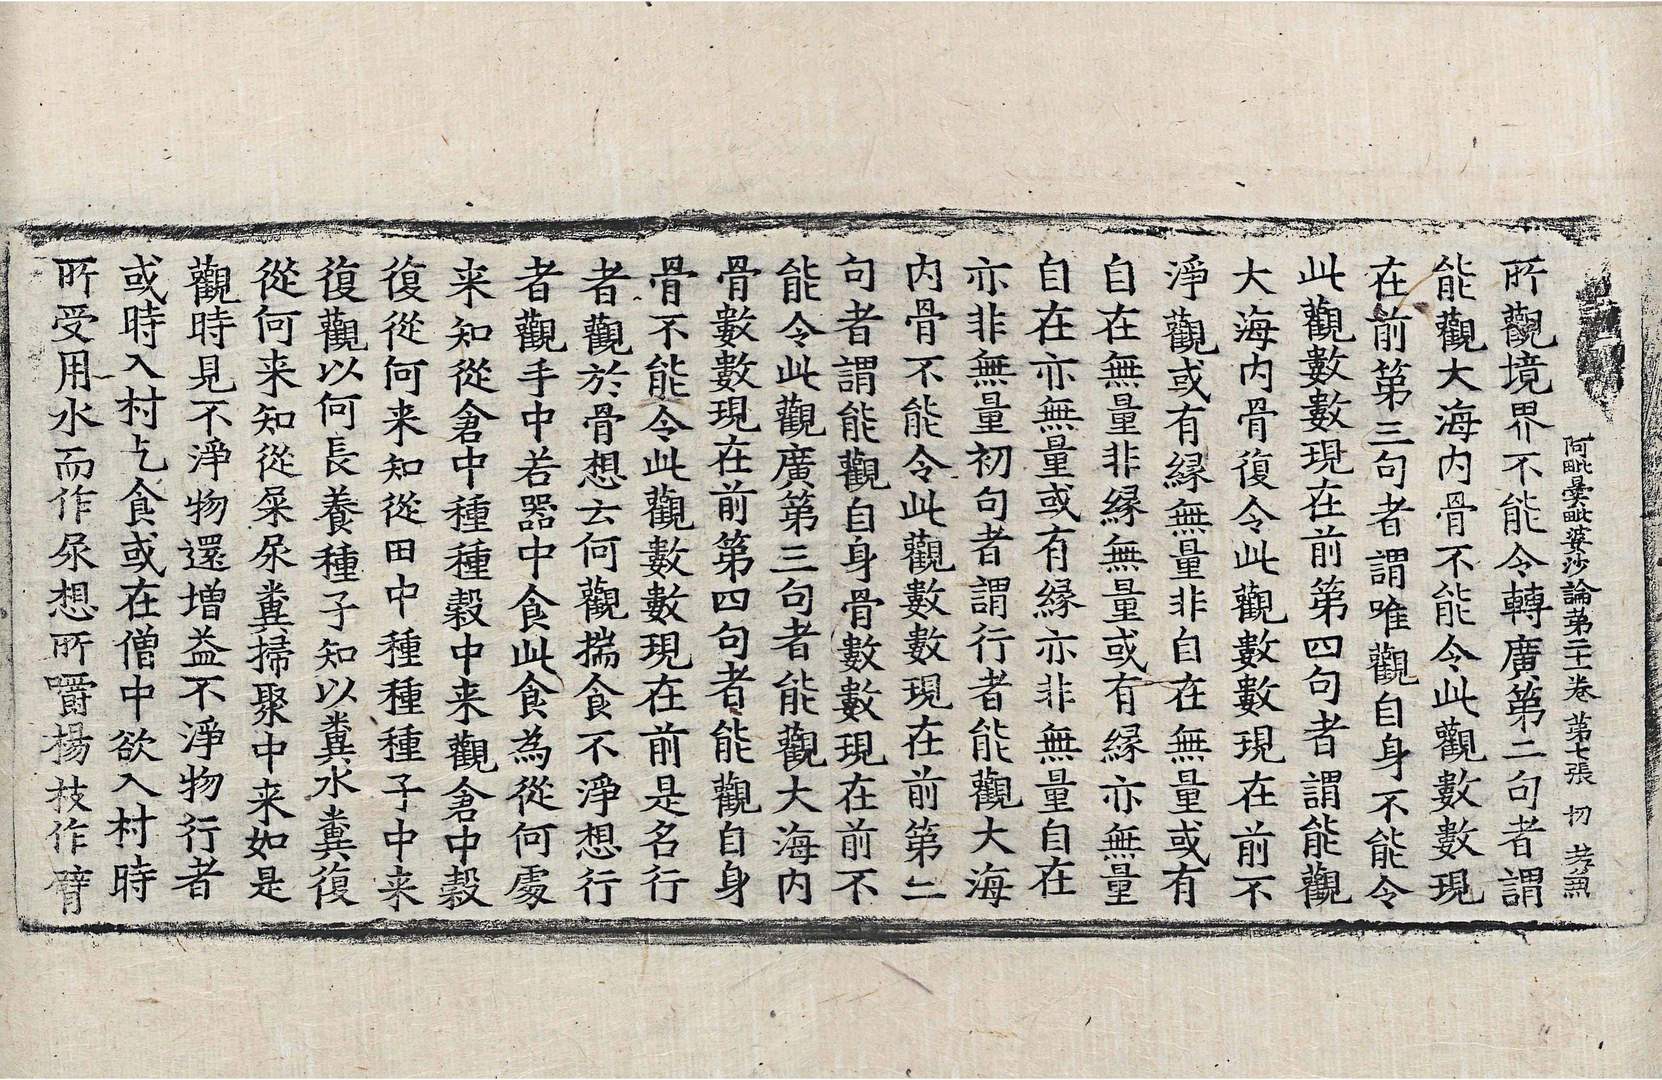 阿毗曇毗婆沙論第二十一卷 第七張 切
所觀境界不能令轉廣第二句者謂
能觀大海內骨不能令此觀數數現
在前第三句者謂唯觀自身不能令
此觀數數現在前第四句者謂能觀
大海內骨復令此觀數數現在前不
淨觀或有緣無量非自在無量或有
自在無量非緣無量或有緣亦無量
自在亦無量或有緣亦非無量自在
亦非無量初句者謂行者能觀大海
内骨不能令此觀數數現在前第二
句者謂能觀自身骨數數現在前不
能令此觀廣第三句者能觀大海内
骨數數現在前第四句者能觀自身
骨不能令此觀數數現在前是名行
者觀於骨想云何觀揣食不淨想行
者觀手中若器中食此食為從何處
来知從倉中種種穀中来觀倉中穀
復從何来知從田中種種種子中来
復觀以何長養種子知以糞水糞復
從何来知從屎尿糞掃聚中来如是
觀時見不淨物還增益不淨物行者
或時入村乞食或在僧中欲入村時
所受用水而作尿想所嚼楊枝作臂